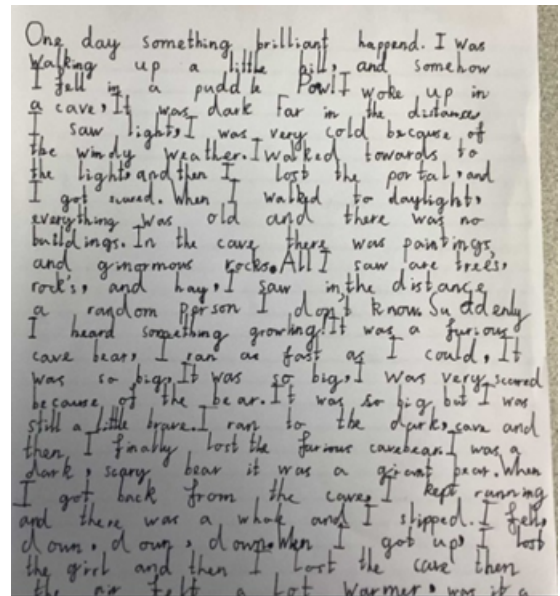 One day something brilliant happend. I was
walking up a little hill, and somehow
I fell in a puddle Pow! I woke up in
a cave, It was dark Far in the distance
I saw light, I was very cold because of
the windy weather. I walked towards to
the light, and then I lost the portal, and
I got scared. When I walked to daylight,
everything was old and there was no
buildings. In the cave there was paintings,
and ginormous rocks. All I saw are trees,
rock's, and hay, I saw in the distance
a random person I don't know. Suddenly
I heard something growling! It was a furious
cave bear, I ran as fast as I could, It
was so big, It was so big, I was very scared
because of the bear. It was so big but I was
still a little brave. I ran to the dark, cave and
then I finally lost the furious cavebear. I was a
dark, scary bear it was a girant bear. When
I got back from the cave, I kept running
and there was a whole and I slipped. I fell,
down, down, down. When I got up, I lost
the girl and then I lost the cave then
the air felt a lot warmer, was it a